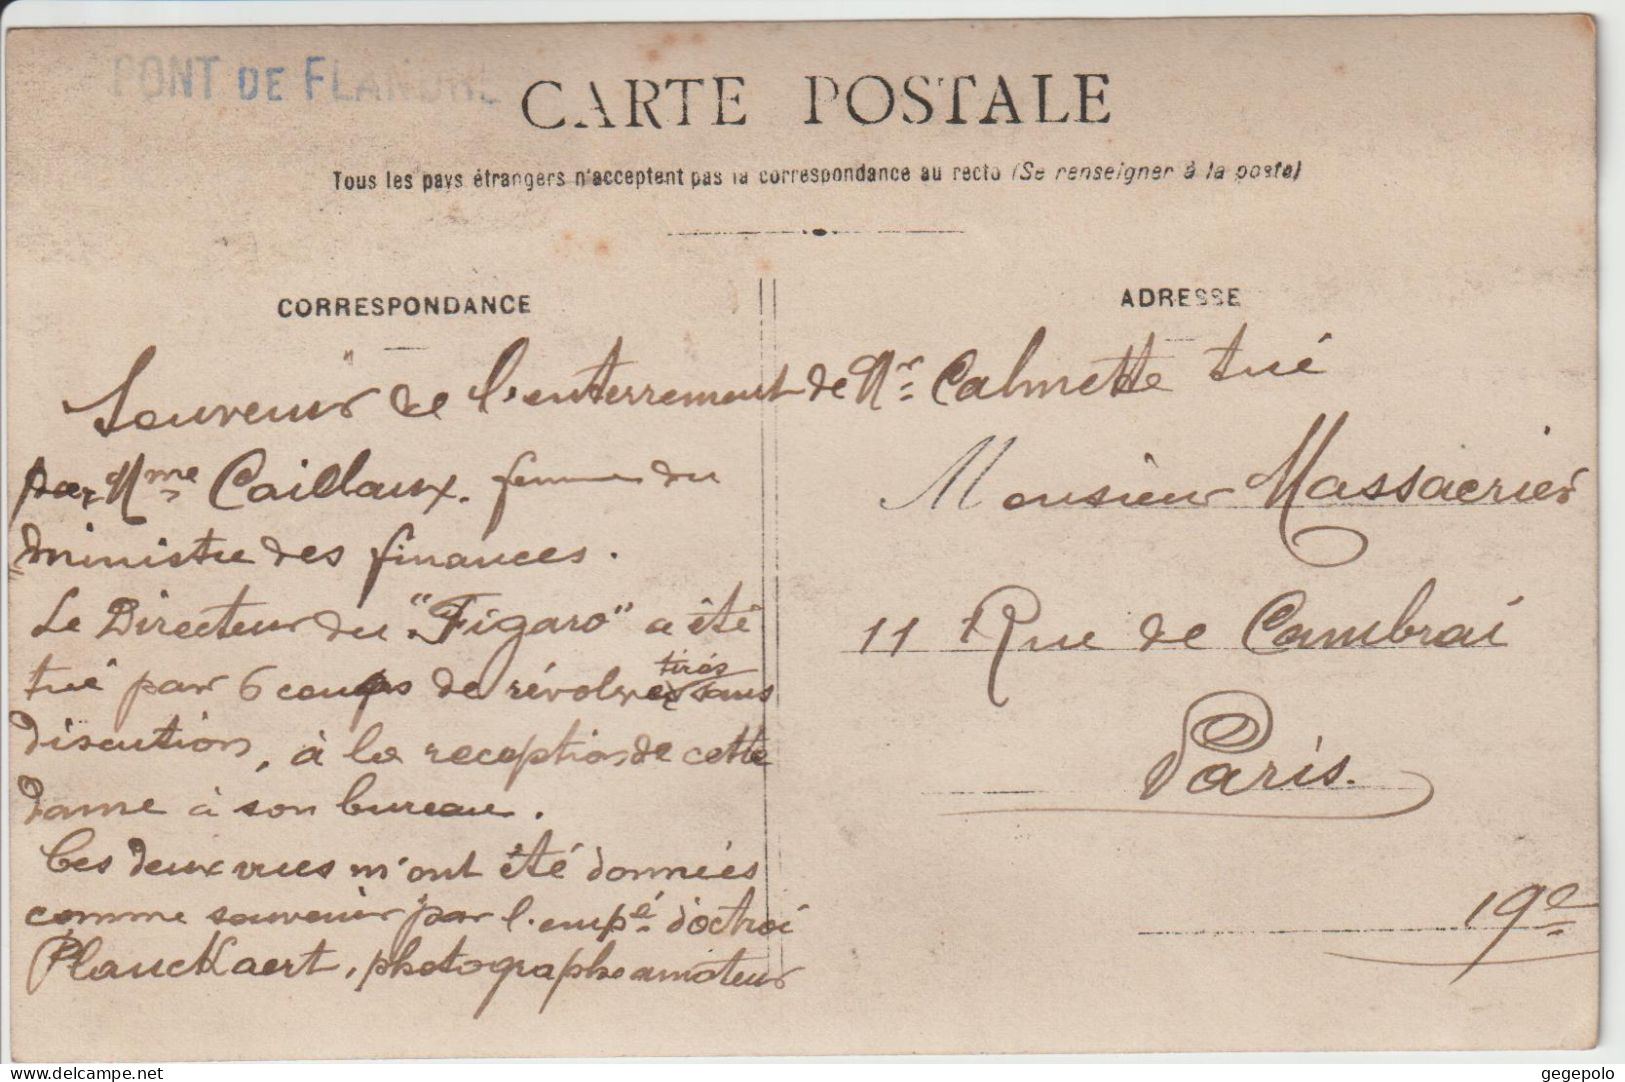 PONT DE FLANDRE
CARTE POSTALE
Tous les pays étrangers n'acceptent pas la correspondance au recto (Se renseigner à la poste)
CORRESPONDANCE
Souvenir de l'enterrement de Mr Calmette tué
par Mme Caillaux. femme du
ministre des finances.
Le Directeur du "Figaro" a été
tué par 6 coups de révolver tirés sans
discution, à la reception de cette
dame à son bureau.
Ces deux vues m'ont été données
comme souvenir par l'empé d'octroi
Planckaert, photographe amateur
ADRESSE
Monsieur Massacrier
11 Rue de Cambrai
Paris.
19e
delcampe.net
gegepolo